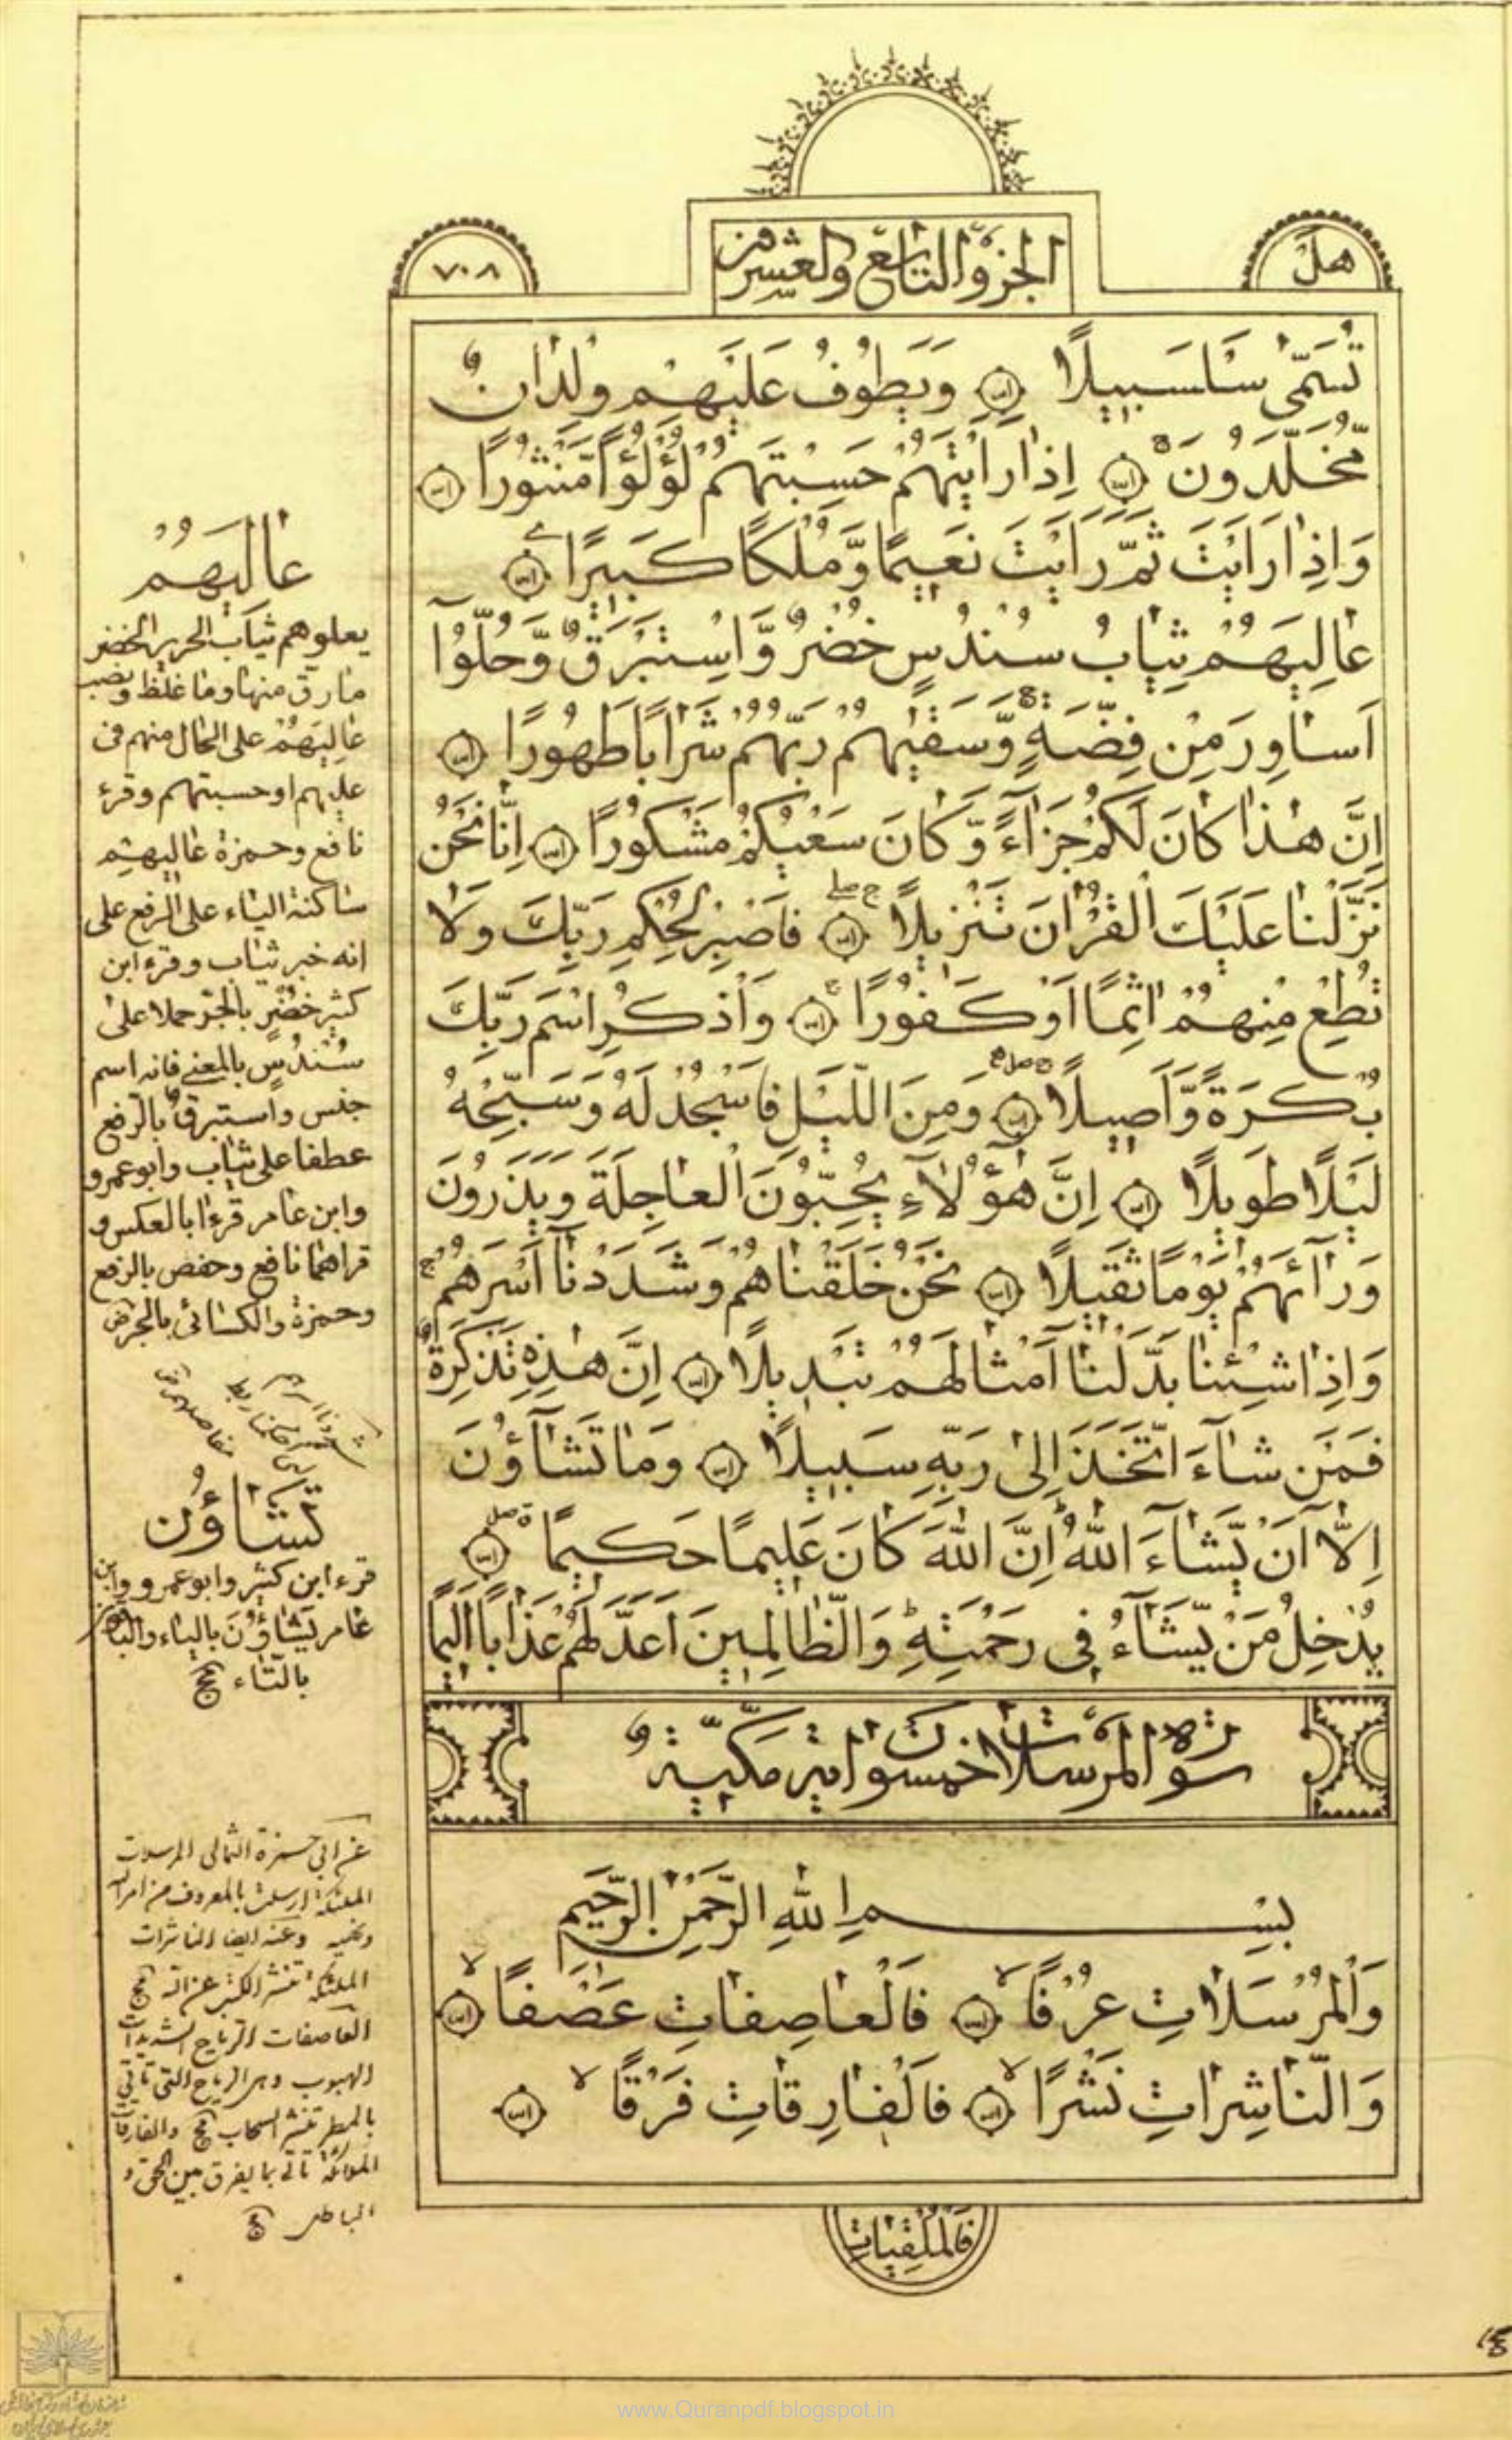 هل
الجزؤ التاسع والعشرون
٧٠٨
تُسَمّٰى سَلْسَبِيلًا وَيَطُوفُ عَلَيْهِمْ وِلْدَانٌ
مُّخَلَّدُونَ اِذَا رَاَيْتَهُمْ حَسِبْتَهُمْ لُؤْلُؤًا مَّنْثُورًا
وَاِذَا رَاَيْتَ ثَمَّ رَاَيْتَ نَعِيمًا وَّمُلْكًا كَبِيرًا
عَالِيَهُمْ ثِيَابُ سُنْدُسٍ خُضْرٌ وَّاِسْتَبْرَقٌ وَّحُلُّوٓا
اَسَاوِرَ مِنْ فِضَّةٍ وَّسَقٰيهُمْ رَبُّهُمْ شَرَابًا طَهُورًا
اِنَّ هٰذَا كَانَ لَكُمْ جَزَآءً وَّكَانَ سَعْيُكُمْ مَشْكُورًا اِنَّا نَحْنُ
نَزَّلْنَا عَلَيْكَ الْقُرْاٰنَ تَنْزِيلًا فَاصْبِرْ لِحُكْمِ رَبِّكَ وَلَا
تُطِعْ مِنْهُمْ اٰثِمًا اَوْ كَفُورًا وَاذْكُرِ اسْمَ رَبِّكَ
بُكْرَةً وَّاَصِيلًا وَمِنَ اللَّيْلِ فَاسْجُدْ لَهُ وَسَبِّحْهُ
لَيْلًا طَوِيلًا اِنَّ هٰٓؤُلَآءِ يُحِبُّونَ الْعَاجِلَةَ وَيَذَرُونَ
وَرَآئَهُمْ يَوْمًا ثَقِيلًا نَحْنُ خَلَقْنَاهُمْ وَشَدَدْنَآ اَسْرَهُمْ
وَاِذَا شِئْنَا بَدَّلْنَآ اَمْثَالَهُمْ تَبْدِيلًا اِنَّ هٰذِهِ تَذْكِرَةٌ
فَمَنْ شَآءَ اتَّخَذَ اِلٰى رَبِّهِ سَبِيلًا وَمَا تَشَآؤُنَ
اِلَّآ اَنْ يَّشَآءَ اللّٰهُ اِنَّ اللّٰهَ كَانَ عَلِيمًا حَكِيمًا
يُدْخِلُ مَنْ يَّشَآءُ فِى رَحْمَتِهِ وَالظَّالِمِينَ اَعَدَّ لَهُمْ عَذَابًا اَلِيمًا
سورة المرسلات خمسون اية مكيّة
بِسْمِ اللّٰهِ الرَّحْمٰنِ الرَّحِيمِ
وَالْمُرْسَلَاتِ عُرْفًا فَالْعَاصِفَاتِ عَصْفًا
وَالنَّاشِرَاتِ نَشْرًا فَالْفَارِقَاتِ فَرْقًا
فَالْمُلْقِيَاتِ
عَالِيَهُمْ
يعلوهم ثياب الحرير الخضر
مارق منها وما غلظ ونصب
عَالِيَهُمْ على الحال منهم فى
عليهم او حسبتهم وقرء
نافع وحمزة عاليهم
ساكنة الياء على الرفع على
انه خبر ثياب وقرء ابن
كثير خضر بالجر حملا على
سندس بالمعنى فانه اسم
جنس واستبرق بالرفع
عطفا على ثياب وابوعمرو
وابن عامر قرءا بالعكس و
قراهما نافع وحفص بالرفع
وحمزة والكسائى بالجر
تَشَاؤُن
قرء ابن كثير وابوعمرو وابن
عامر يَشَاؤُنَ بالياء والباقون
بالتاء
عن ابى حمزة الثمالى المرسلات
الملئكة ارسلت بالمعروف من امر الله
ونهيه وعنه ايضا الناشرات
الملئكة تنشر الكتب عن الله
العاصفات الرياح الشديدات
الهبوب وهى الرياح التى تاتى
بالمطر تنشر السحاب والفارقات
الملائكة تاتى بما يفرق بين الحق و
الباطل
www.Quranpdf.blogspot.in